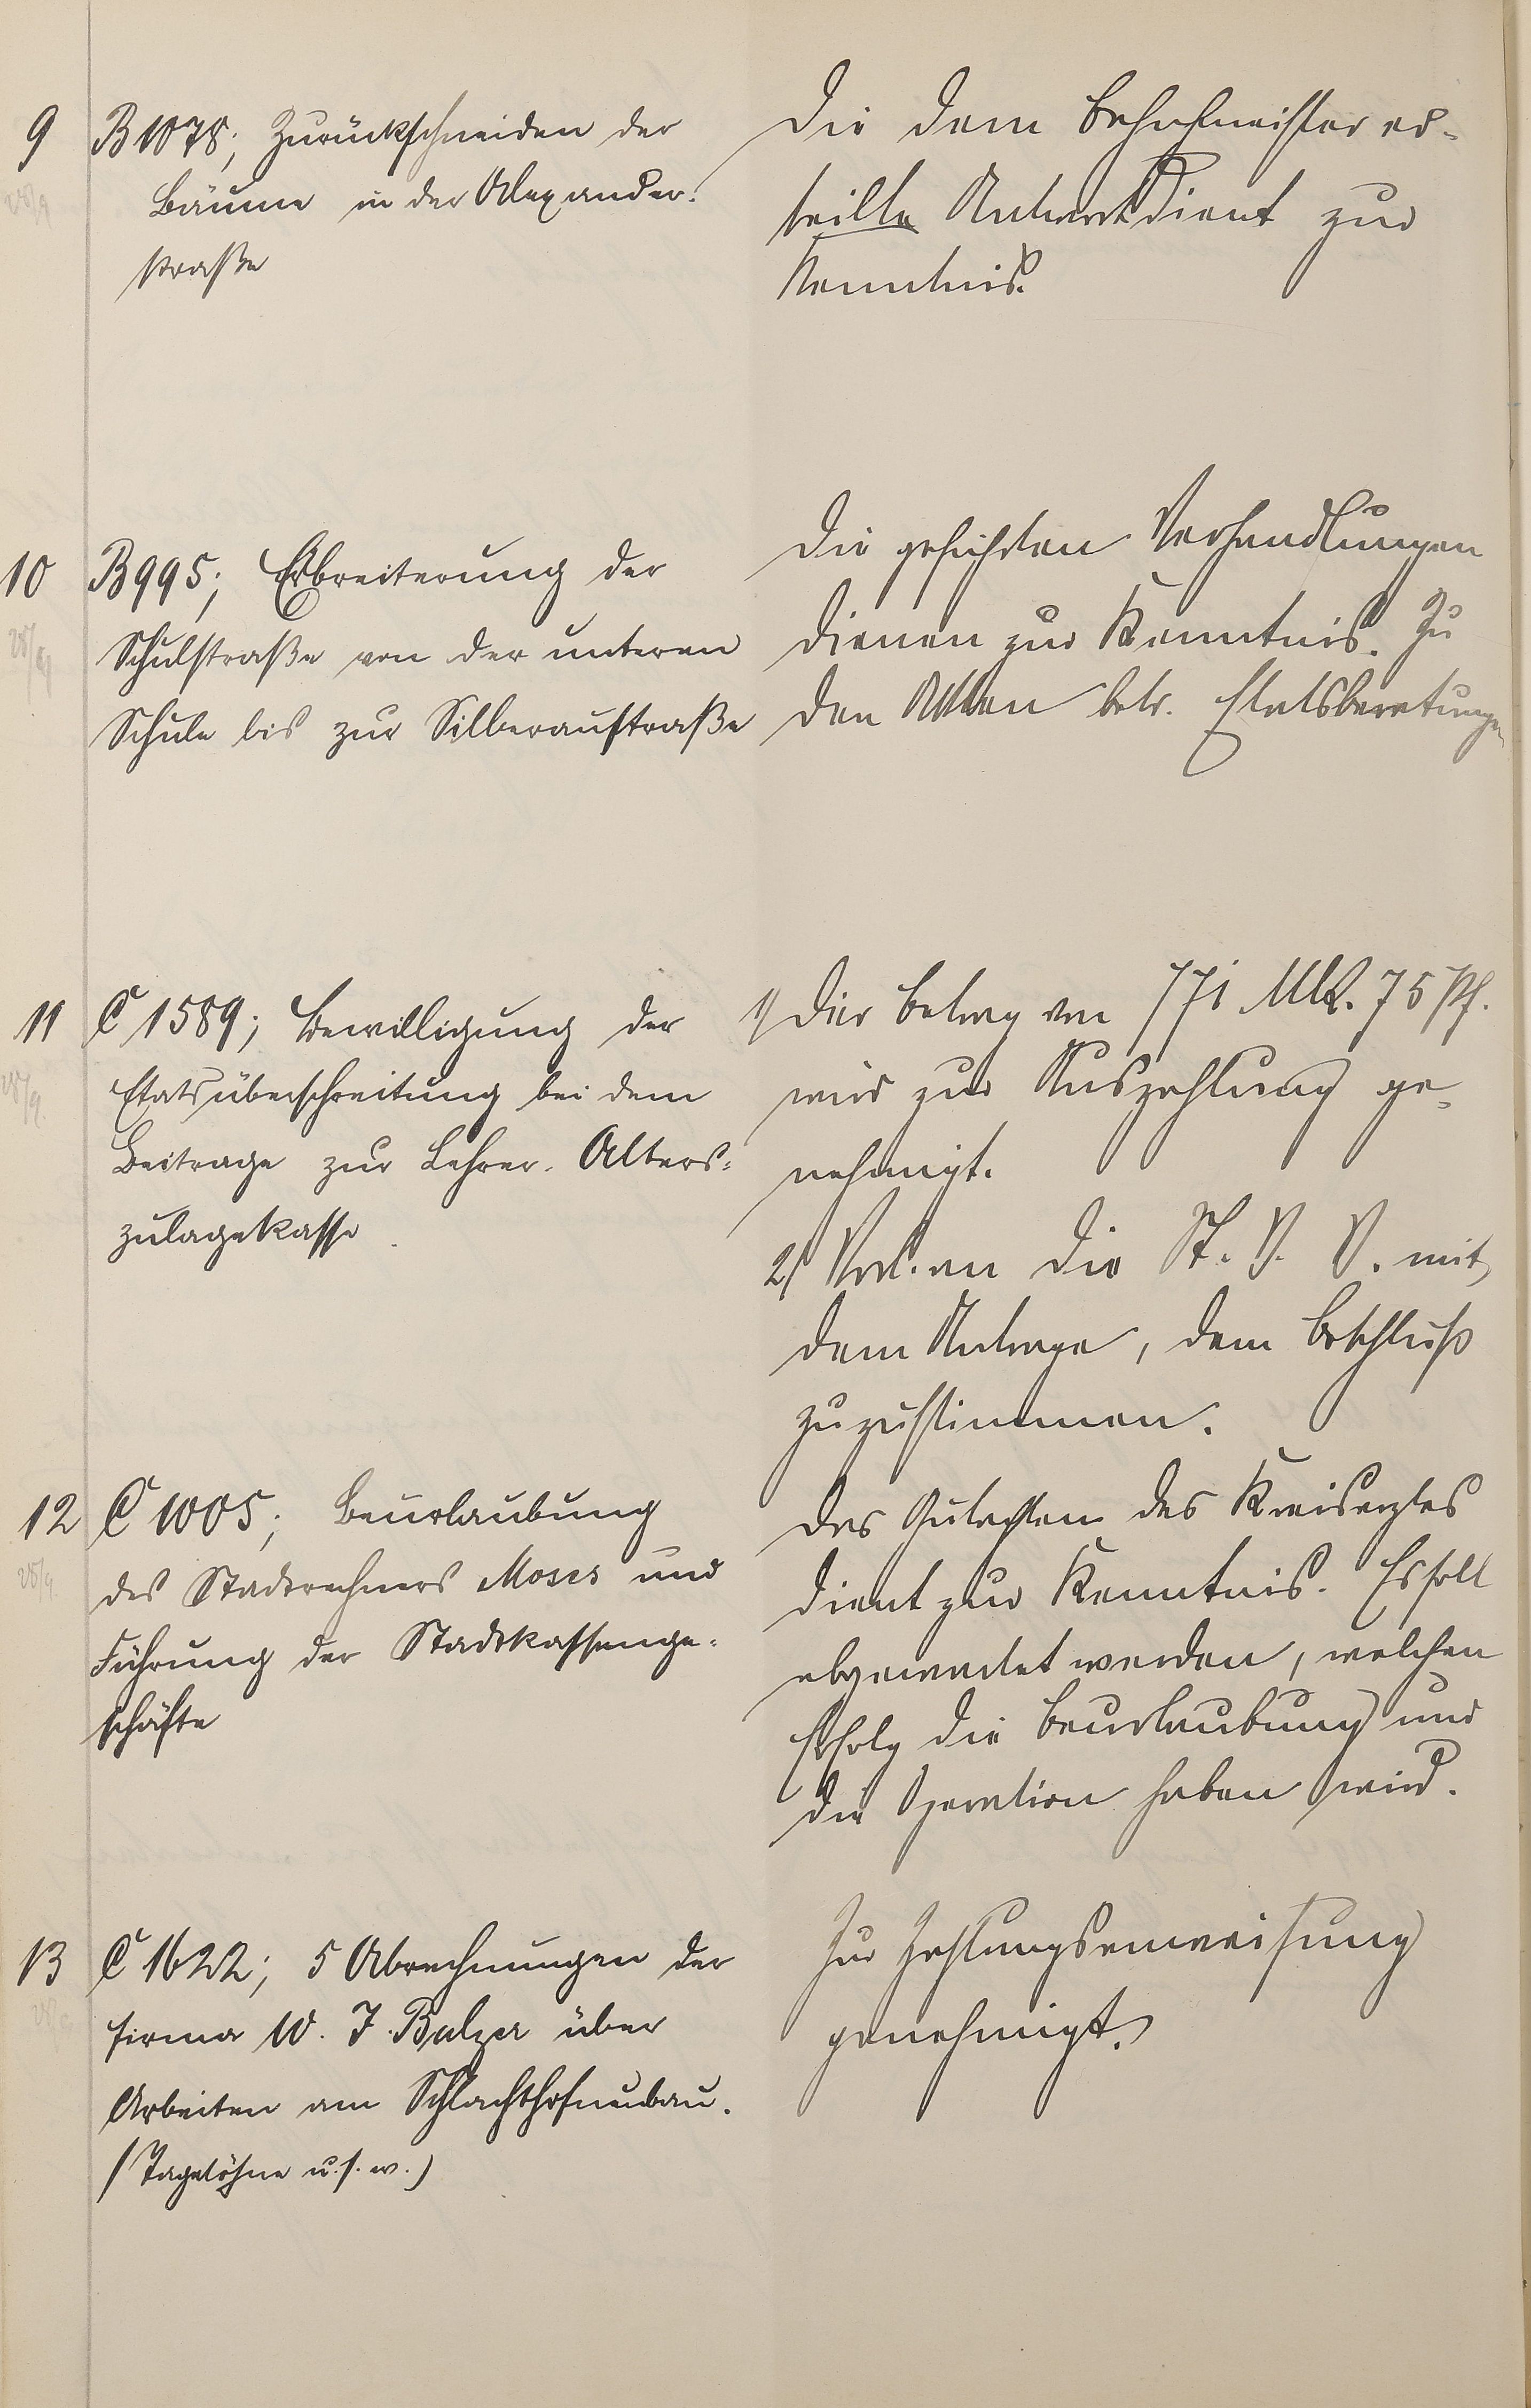 9
B 1078; Zurückschneiden der
Bäume in der Alexander-
straße
Die dem Bahnmeister er-
teilte Antwort dient zur
Kenntnis.
10
B 995; Erbreiterung der
Schulstraße von der unteren
Schule bis zur Silberaustraße
Die geführten Verhandlungen
dienen zur Kenntnis. Zu
den Akten betr. Etatsberatungen
11
C 1589; Bewilligung der
Etatsüberschreitung bei dem
Beitrage zur Lehrer-Alters-
zulagekasse.
1) Der Betrag von 771 Mk. 75 Pf.
wird zur Auszahlung ge-
nehmigt.
2) Vorl. an die St. V. V. mit
dem Antrage, dem Beschluß
zuzustimmen.
12
C 1005; Beurlaubung
des Stadtrechners Moses und
Führung der Stadtkassenge-
schäfte
Das Gutachten des Kreisarztes
dient zur Kenntnis. Es soll
abgewartet werden, welchen
Erfolg die Beurlaubung und
die Operation haben wird.
13
C 1622; 5 Abrechnungen der
Firma W. J. Balzer über
Arbeiten am Schlachthofneubau.
(Tagelöhne u.s.w.)
Zur Zahlungsanweisung
genehmigt.